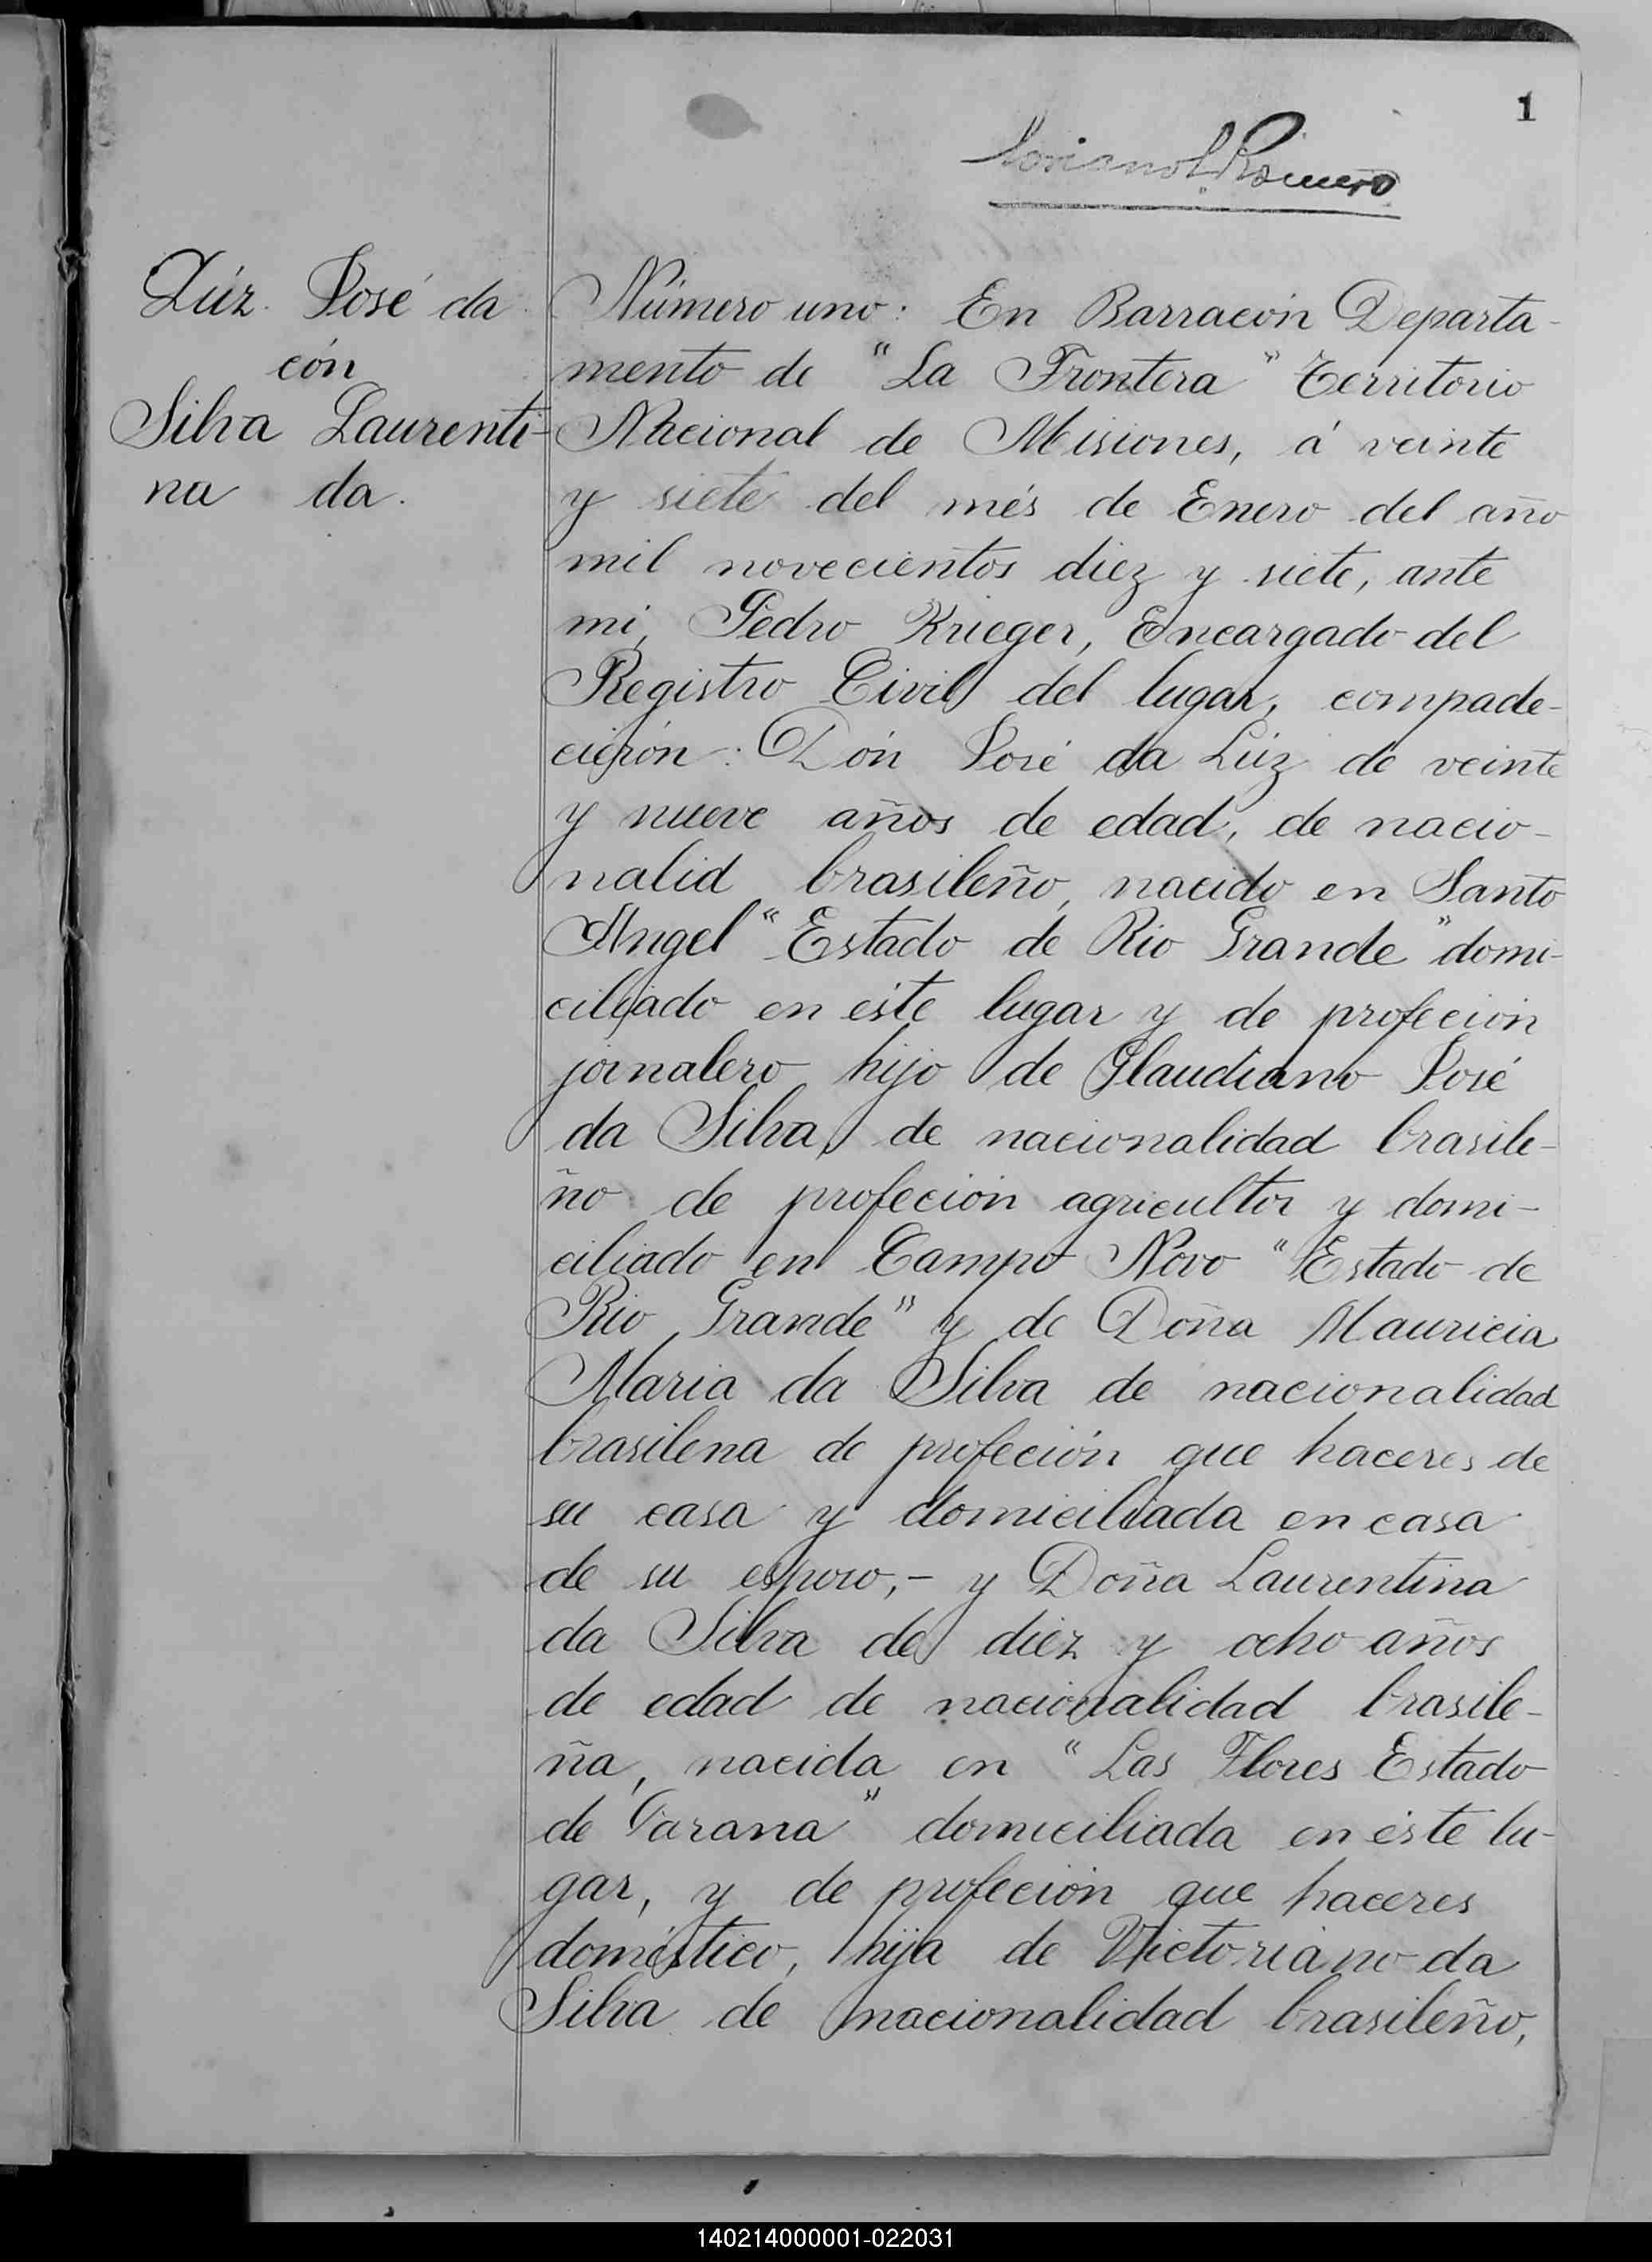 1
Romero
Lúz José da
cón
Silva Laurenti-
na da.
Número uno: En Barracón Departa-
mento de "La Frontera" Territorio
Nacional de Misiones, á veinte
y siete del més de Enero del año
mil novecientos diez y siete, ante
mi, Pedro Krieger, Encargado del
Registro Civil del lugar, compade-
cierón: Dón José da Lúz de veinte
y nueve años de edad, de nacio-
nalid brasileño, nacido en Santo
Angel "Estado de Rio Grande" domi-
ciliado en éste lugar y de profeción
jornalero hijo de Glaudiano José
da Silva, de nacionalidad brasile-
ño de profeción agricultor y domi-
ciliado en Campo Novo "Estado de
Rio Grande" y de Doña Mauricia
Maria da Silva de nacionalidad
brasilena de profeción que haceres de
su casa y domiciliada en casa
de su esposo,- y Doña Laurentina
da Silva de diez y ocho años
de edad de nacionalidad brasile-
ña, nacida en "Las Flores Estado
de Parana" domiciliada en éste lu-
gar, y de profeción que haceres
doméstico, hija de Victoriano da
Silva de nacionalidad brasileño,
140214000001-022031